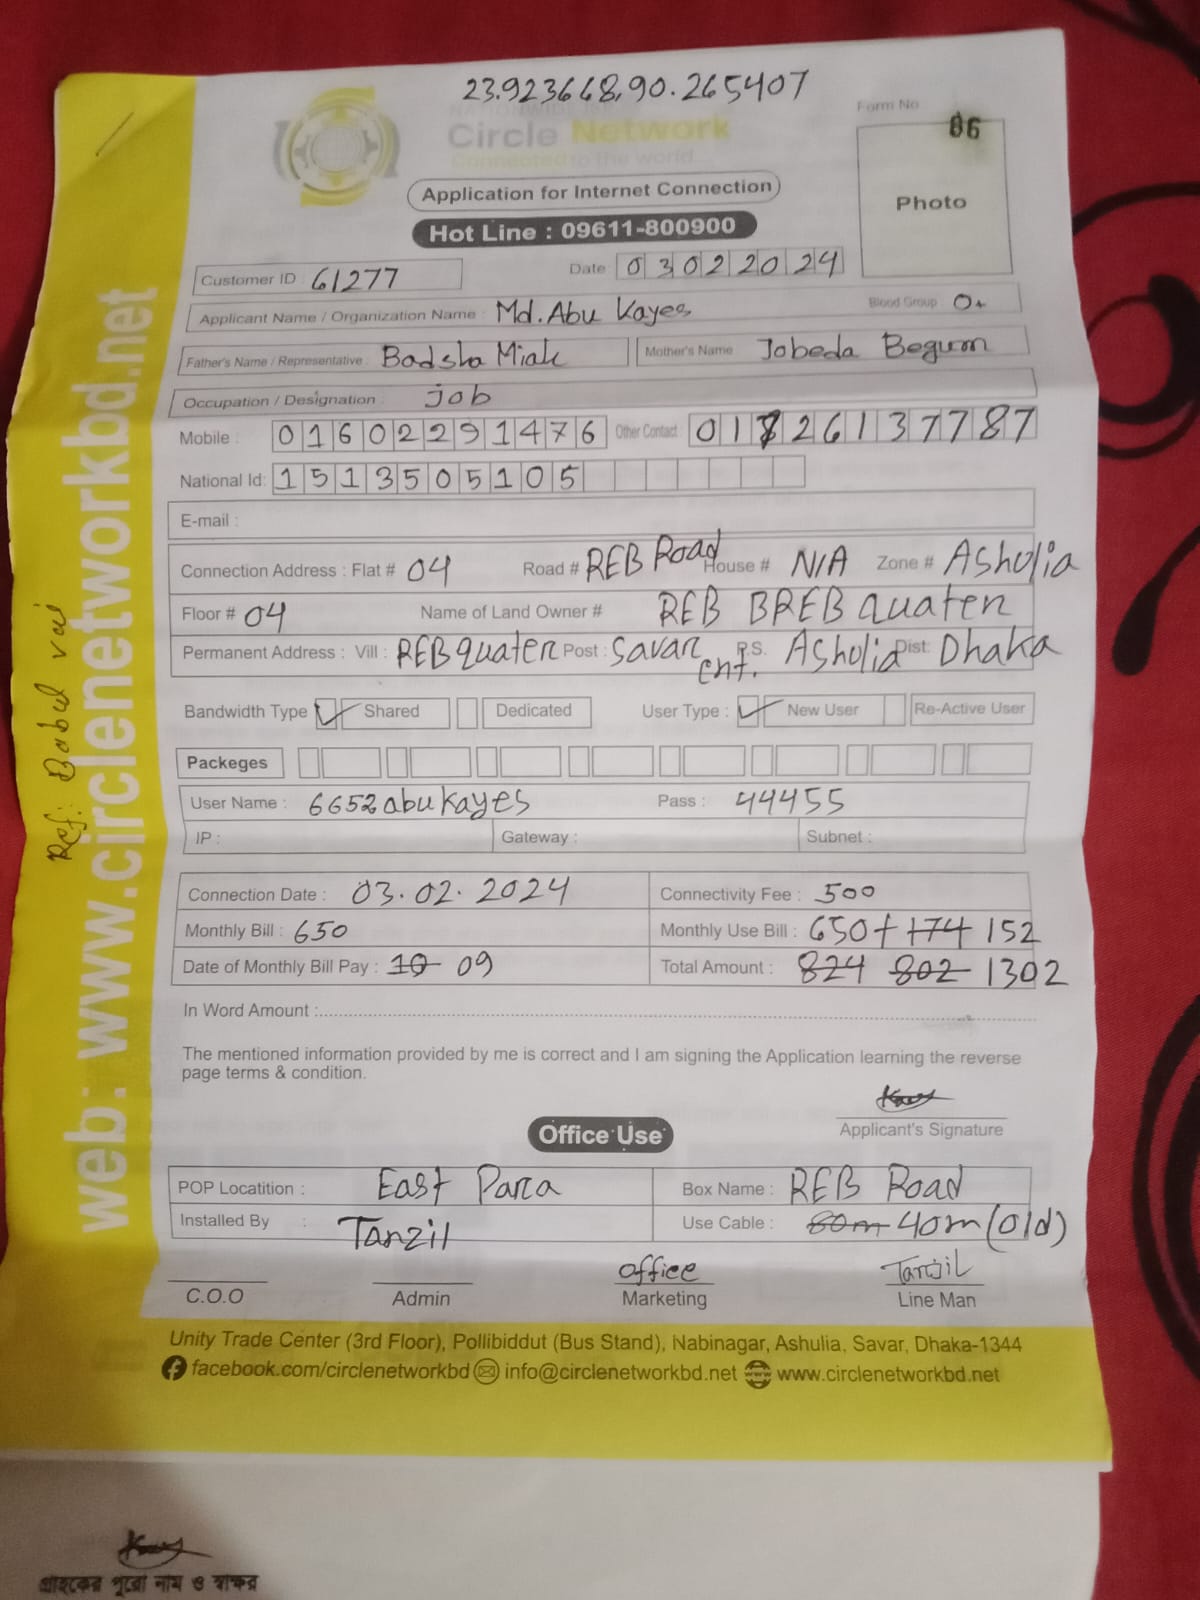 23.923668,90.265407
Form No
06
Circle Network
Connected to the world...
Photo
Application for Internet Connection
Hot Line : 09611-800900
Customer ID : 61277
Date : 03022024
Applicant Name / Organization Name : Md. Abu Kayes
Blood Group : O+
Father's Name / Representative : Badsha Miah
Mother's Name Jobeda Begum
Occupation / Designation : job
Mobile : 01602291476 Other Contact : 01726137787
National Id: 1513505105
E-mail :
Connection Address : Flat # 04 Road # REB Road House # N/A Zone # Asholia
Floor # 04 Name of Land Owner # REB BREB quater
Permanent Address : Vill : REB quater Post : Savar cnt. P.S. Asholia Dist: Dhaka
Bandwidth Type Shared Dedicated User Type : New User Re-Active User
Packeges
User Name : 6652abukayes Pass : 44455
IP : Gateway : Subnet :
Connection Date : 03.02.2024 Connectivity Fee : 500
Monthly Bill : 650 Monthly Use Bill : 650+ 174 152
Date of Monthly Bill Pay : 10 09 Total Amount : 824 802 1302
In Word Amount :
The mentioned information provided by me is correct and I am signing the Application learning the reverse
page terms & condition.
Applicant's Signature
Office Use
POP Locatition : East Para Box Name : REB Road
Installed By : Tanzil Use Cable : 80m 40m (old)
office Tanzil
C.O.O Admin Marketing Line Man
Unity Trade Center (3rd Floor), Pollibiddut (Bus Stand), Nabinagar, Ashulia, Savar, Dhaka-1344
facebook.com/circlenetworkbd info@circlenetworkbd.net www.circlenetworkbd.net
web: www.circlenetworkbd.net
Ref: Babul vai
গ্রাহকের পুরো নাম ও স্বাক্ষর